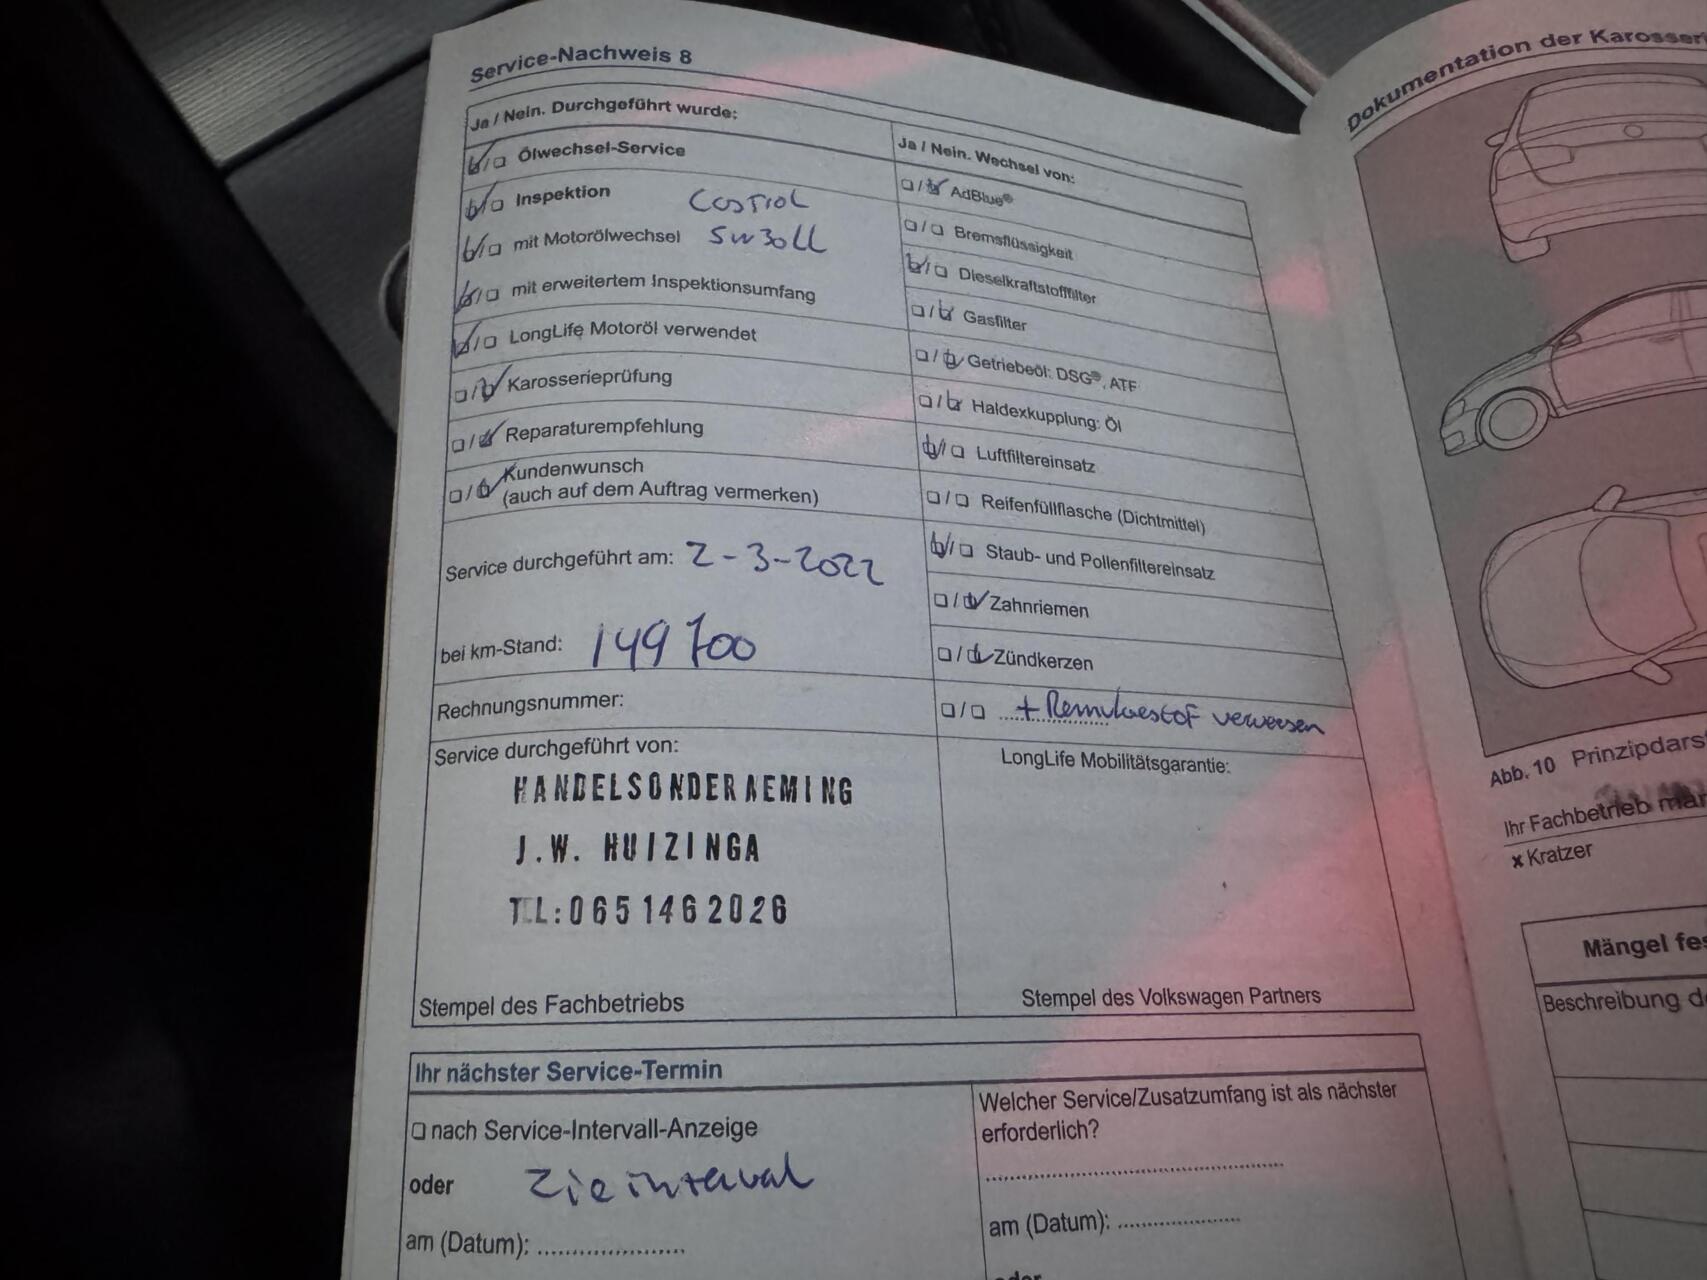 Service-Nachweis 8
Ja / Nein. Durchgeführt wurde:
Ölwechsel-Service
Inspektion Castrol
mit Motorölwechsel 5w30LL
mit erweitertem Inspektionsumfang
LongLife Motoröl verwendet
Karosserieprüfung
Reparaturempfehlung
Kundenwunsch
(auch auf dem Auftrag vermerken)
Service durchgeführt am: 2-3-2022
bei km-Stand: 149700
Rechnungsnummer:
Service durchgeführt von:
HANDELSONDERNEMING
J.W. HUIZINGA
TEL:0651462026
Stempel des Fachbetriebs
Ja / Nein. Wechsel von:
AdBlue®
Bremsflüssigkeit
Dieselkraftstofffilter
Gasfilter
Getriebeöl: DSG®, ATF
Haldexkupplung: Öl
Luftfiltereinsatz
Reifenfüllflasche (Dichtmittel)
Staub- und Pollenfiltereinsatz
Zahnriemen
Zündkerzen
+ Remvloeistof verversen
LongLife Mobilitätsgarantie:
Stempel des Volkswagen Partners
Ihr nächster Service-Termin
nach Service-Intervall-Anzeige
oder Zie interval
am (Datum):
Welcher Service/Zusatzumfang ist als nächster
erforderlich?
am (Datum):
oder
Dokumentation der
Abb. 10
Ihr Fachbetrieb
x Kratzer
Mängel
Beschreibung